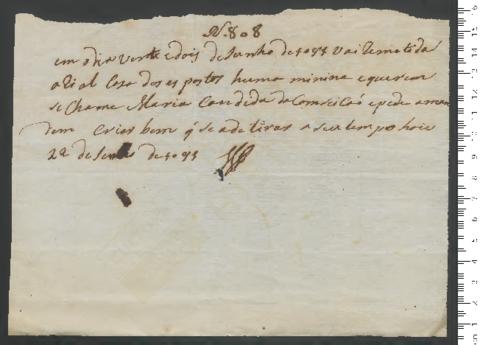 N. 808
em o dia vente e dois de Junho de vai Remetida
a Rial Caza dos espostos huma minina e querem
se chame Maria Candida da Comseicaõ e pede a man
dem Criar bem q se a de tirar a seu tempo hoie
22 de Junho de